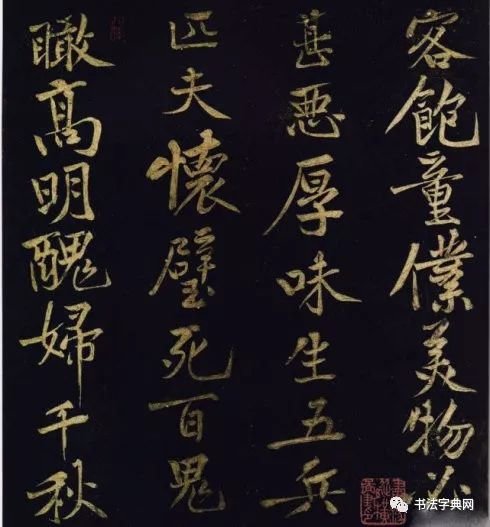 客飽童僕美物必
甚悪厚味生五兵
匹夫懷璧死百鬼
瞰高明醜婦千秋
书法字典网